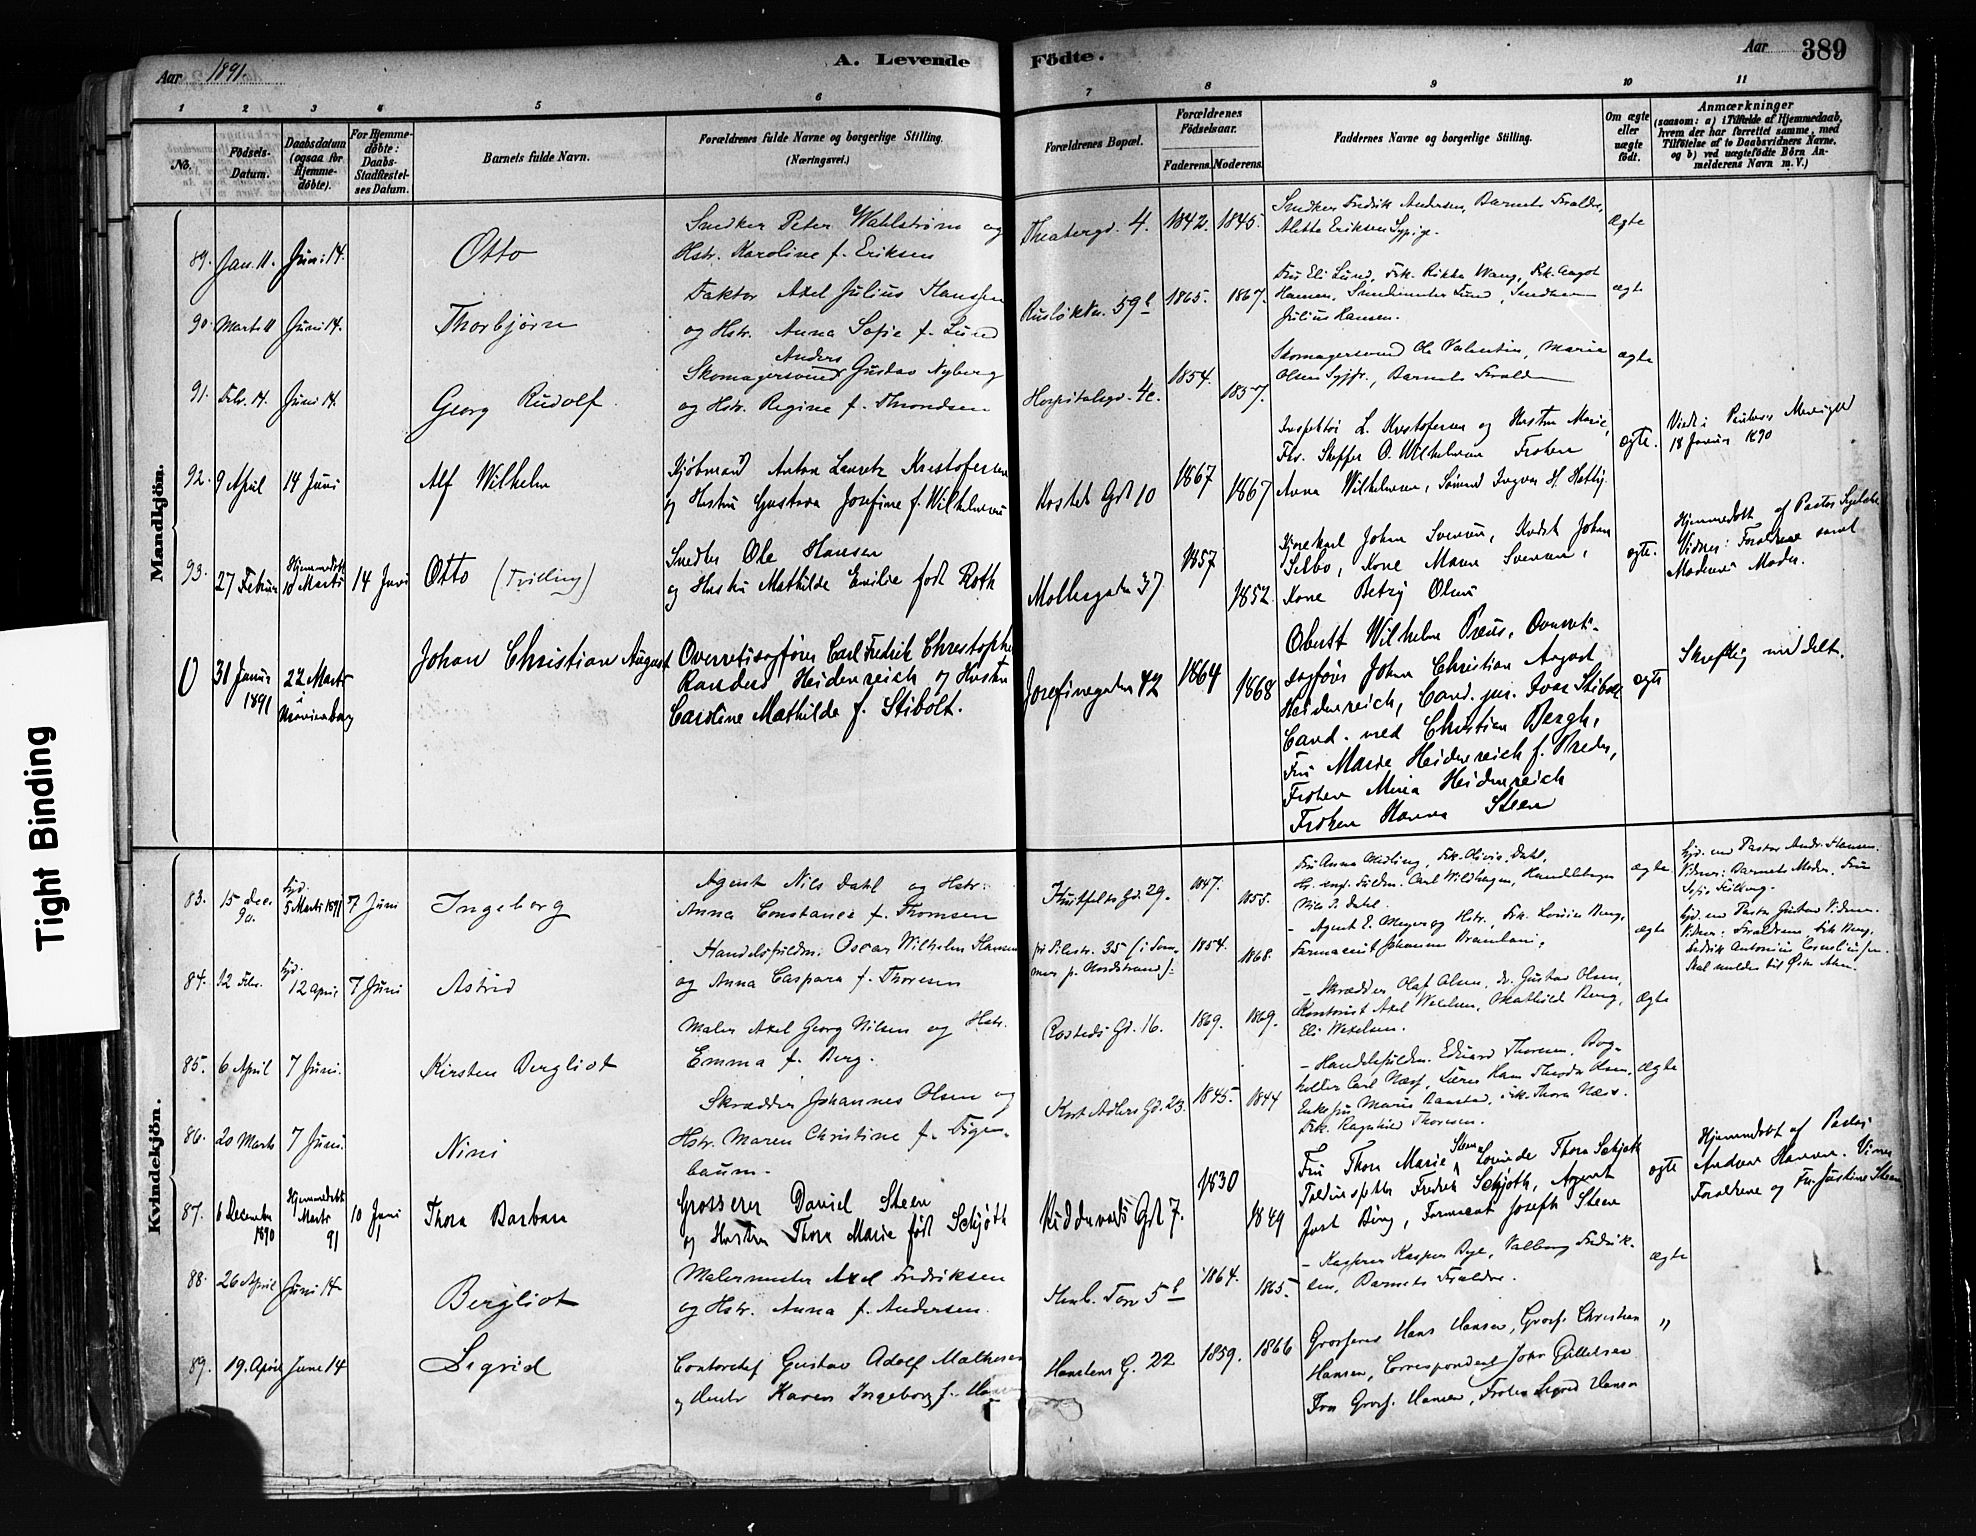 Aar 1891.
A. Levende Födte.
Aar 389
1 2 3 4 5 6 7 8 9 10 11
No.
Födsels-Datum.
Daabsdatum (ogsaa for Hjemme-döbte).
For Hjemme-döbte: Daabs-Stadfæstel-ses Datum.
Barnets fulde Navn.
Forældrenes fulde Navne og borgerlige Stilling.
(Næringsvei.)
Forældrenes Bopæl.
Forældrenes Födselsaar.
Faderens. Moderens.
Faddernes Navne og borgerlige Stilling.
Om ægte eller uægte födt.
Anmærkninger
(saasom: a) i Tilfælde af Hjemmedaab,
hvem der har forrettet samme, med
Tilföielse af to Daabsvidners Navne,
og b) ved uægtefödte Börn An-
melderens Navn m. V.)
Mandkjön.
89. Jan. 11. Juni 14. Otto
Snedker Peter Wahlstrøm og
Hstr. Karoline f. Eriksen
Theatergd. 4. 1842. 1845.
Snedker Fredrik Andersen, Barnets Forældre,
Aletta Eriksen Sypige.
Ægte
90. Marts 11 Juni 14. Thorbjørn
Faktor Axel Julius Hanssen
og Hstr. Anna Sofie f. Lund
Rusløkkv. 59b 1865. 1867.
Fru Eli Lund, Frk. Rikka Wang, Frk. Aagot
Hansen, Lund,
Julius Hansen.
ægte
91. Febr. 14. Juni 14. Georg Rudolf.
Skomagersvend Anders Gustav Nyberg
og Hstr. Regine f. Throndsen
Hospitalsgd. 4c. 1854. 1857.
Skomagersvend Ole Valentin, Marie
Olsen Syjfr., Barnets Forældre
ægte
92. 9 April 14 Juni Alf Wilhelm
Kjøbmand Anton Lauretz Kristofersen
og Hustru Gustava Josefine f. Wilhelmsen
Gdt 10 1867 1867
Inspektør L. Kristofersen og Hustru Marie,
O. Wilhelmsen Frøken
Anna Wilhelmsen, Sømand Ingvar H.
ægte.
Viede i Paulus Menighed
18 Januar 1890
93. 27 Februar Hjemmedøbt 10 Marts 14 Juni Otto (Tvilling)
Snedker Ole Hansen
og Hustru Mathilde Emilie født Roth
Møllergaden 37 1857 1852
Johan Svensen, Kudsk Johan
Selbo, Kone Maren Svensen,
Kone Betzy Olsen
ægte.
Hjemmedøbt af Pastor
Vidner: Forældrene samt
Moderens Moder.
0 31 Januar 1891 22 Marts i
Johan Christian August
Overretssagfører Carl Fredrik Christopher
Randers Heidenreich og Hustru
Caroline Mathilde f. Stibolt.
Josefinegaden 42 1864 1868
Oberstl Wilhelm Preus, Overrets-
sagfører Johan Christian August
Heidenreich, Cand. jur. Ivar Stibolt
Cand. med Christian Bergh,
Fru Marie Heidenreich f. Breder,
Frøken Heidenreich
Frøken Hanna Steen
ægte
Skriftlig meddelt.
Kvindekjön.
83. 15 Dec. 90. hjd. 5 Marts 1891 7 Juni Ingeborg
Agent Nils Dahl og Hstr.
Anna Constance f. Thomsen
Huitfeldts Gd. 29. 1847. 1855.
Fru Anna Meding, Frk. Olivia Dahl,
Carl Wildhagen,
Nils P. Dahl.
ægte
hjd. ved Pastor Andr. Hansen.
Vidner: Barnets Moder, Fru
Sofie
84. 12 Febr. hjd. 12 April 7 Juni Astrid
Handelsfuldm. Oscar Wilhelm Hansen
og Anna Caspara f. Thoresen
Pilestr. 35 (i Som-
mer p. Nordstrand). 1854. 1868.
- Agent E. Meyer og Hstr., Frk. Lovise Berg,
Farmaceut Johannes
ægte
hjd. ved Pastor Gustav
Vidner: Forældrene, Frk Berg,
Fredrik Antonius Corneliussen.
Skal meldes til
85. 6 April 7 Juni. Kirsten Bergliot
Maler Axel Georg Nilsen og Hstr.
Emma f. Berg.
Rosteds Gd. 16. 1869. 1869.
- Skrædder Olaf Olsen, do. Gustav Olsen,
Kontorist Axel Wexelsen, Mathilde Berg,
Eli Wexelsen.
Ægte
86. 20 Marts 7 Juni. Nini
Skrædder Johannes Olsen og
Hstr. Maren Christine f. Figen-
baum.
Kort Adlers Gd. 23. 1845. 1844
- Handelsfuldm. Eduard Thoresen, Bog-
holder Carl Næss, Lærer Hans Theodor Olsen,
Enkefru Marie Aanstad, Frk. Thora Næss.
Frk. Ragnhild Thoresen.
ægte
87. 6 December 1890 Hjemmedøbt Marts 91 10 Juni Thora Barbara
Grosserer Daniel Steen
og Hustru Thora Marie født Schjøth
Riddervolds Gdt 7. 1830 1849
Fru Thora Marie Steen, Lovinde Thora Schjøth
Fredrik Schjøth, Agent
Just Bing, Farmaceut Josefh Steen
ægte
Hjemmedøbt af Pastor
Andreas Hansen. Vidner
Forældrene og Fru Justine Steen
88. 26 April Juni 14 Bergliot
Malermester Axel Fredriksen
og Hstr. Anna f. Andersen.
5b 1864. 1865.
- Kasserer Kasper Bye, Valborg Fredrik-
sen, Barnets Forældre.
ægte
89. 19. April June 14 Sigrid
Contorchef Gustav Adolf Mathesen
og Hustr Karen Ingeborg f. Hansen
Hansteens G. 22 1859. 1866
Grosserer Hans Hansen, Gross. Christian
Hansen, Correspondent John Gulliksen
Fru Gross. Hansen, Frøken Sigrid Hansen
"
Tight Binding